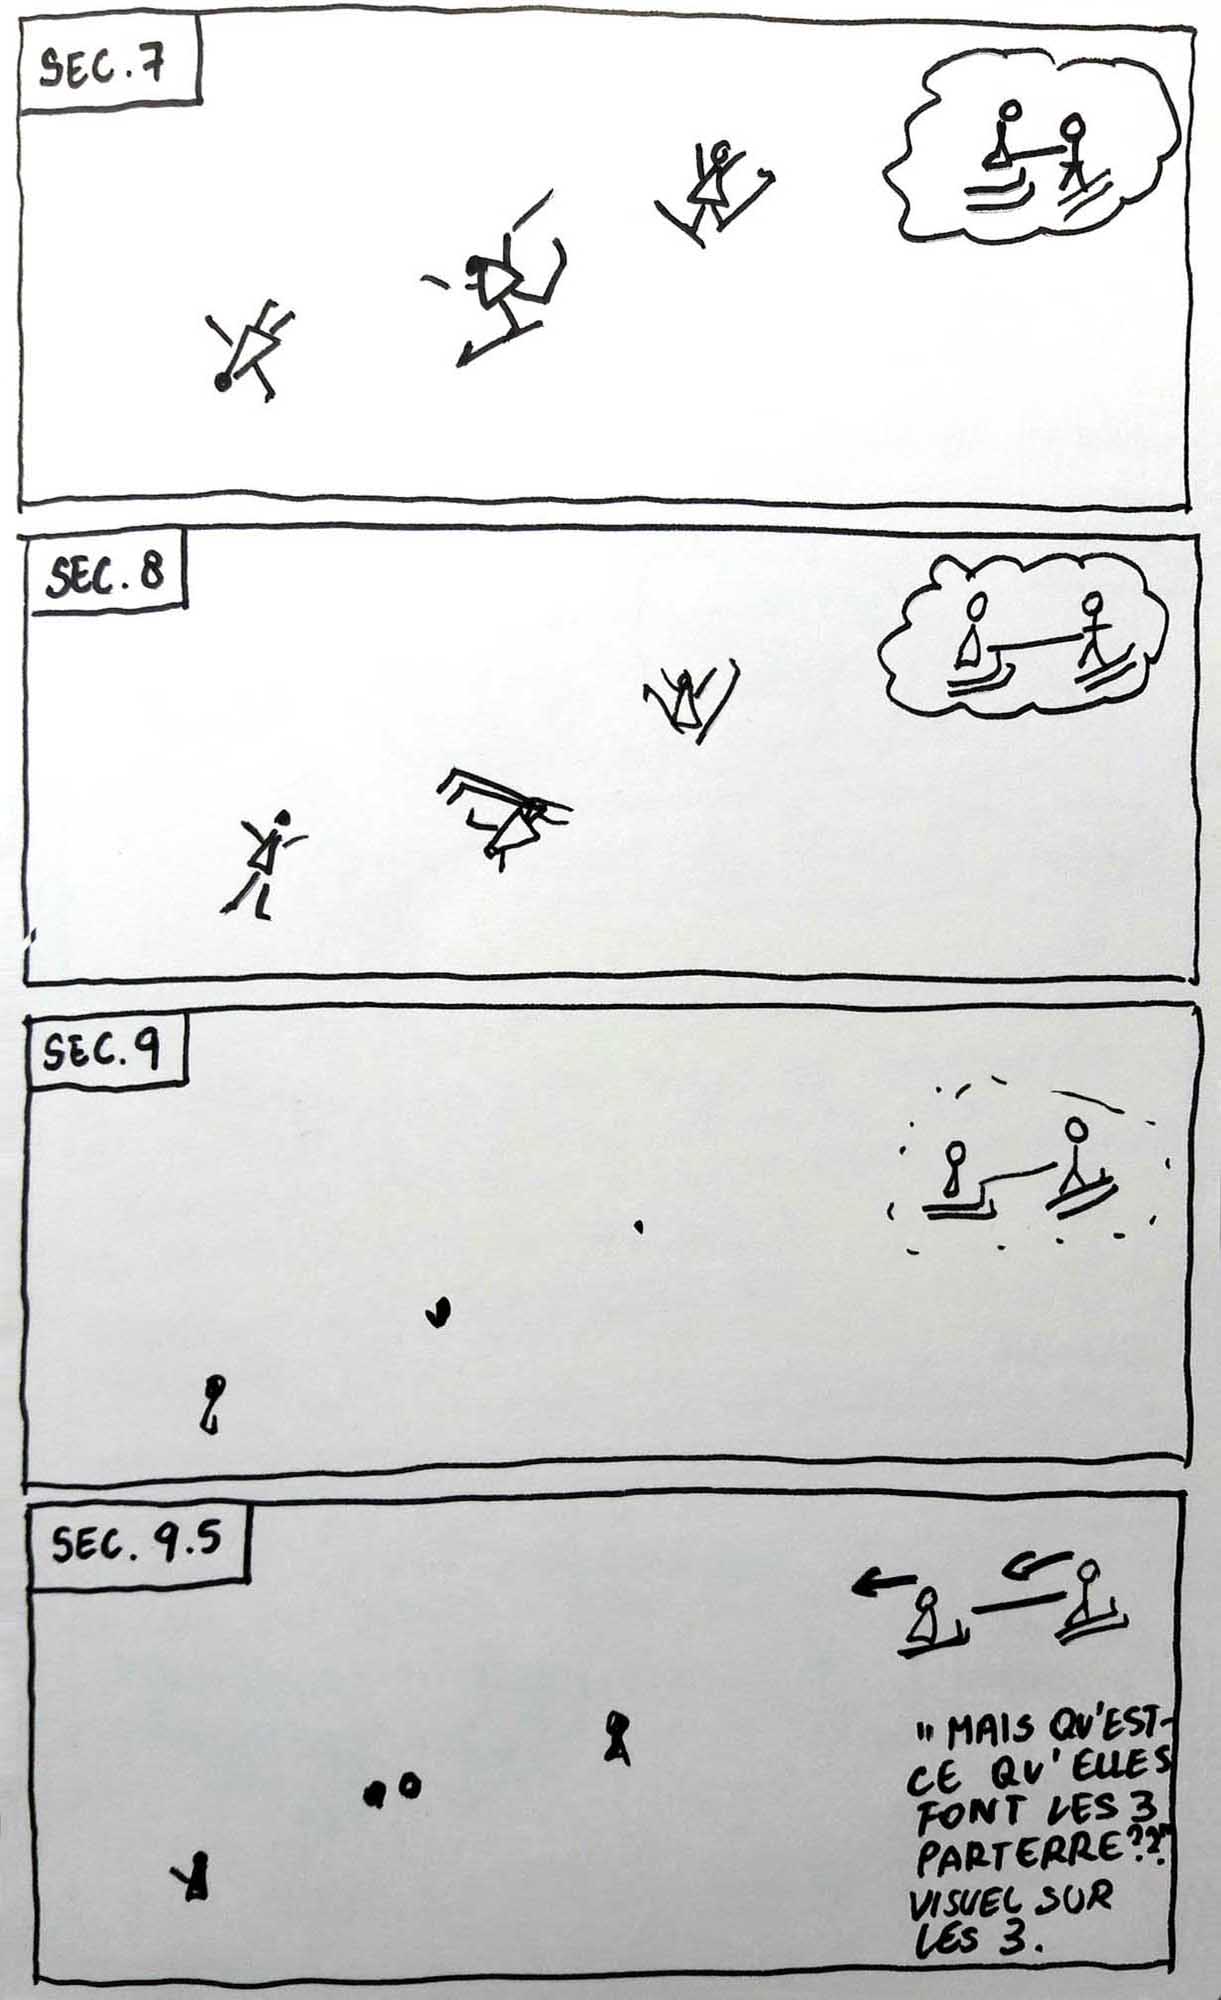 SEC. 7
SEC. 8
SEC. 9
SEC. 9.5
"MAIS QU'EST-
CE QU'ELLES
FONT LES 3
PARTERRE??"
VISUEL SUR
LES 3.